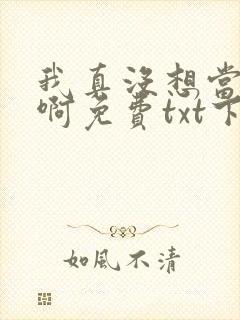 我真没想当
啊免费txt下
如风不清